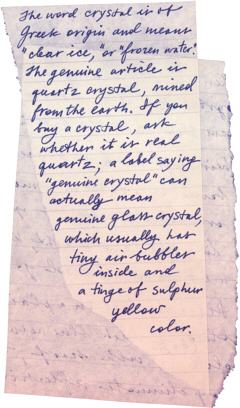 The word crystal is of
Greek origin and means
"clear ice," or "frozen water."
The genuine article is
quartz crystal, mined
from the earth. If you
buy a crystal, ask
whether it is real
quartz; a label saying
"genuine crystal" can
actually mean
genuine glass crystal,
which usually has
tiny air bubbles
inside and
a tinge of sulphur
yellow
color.